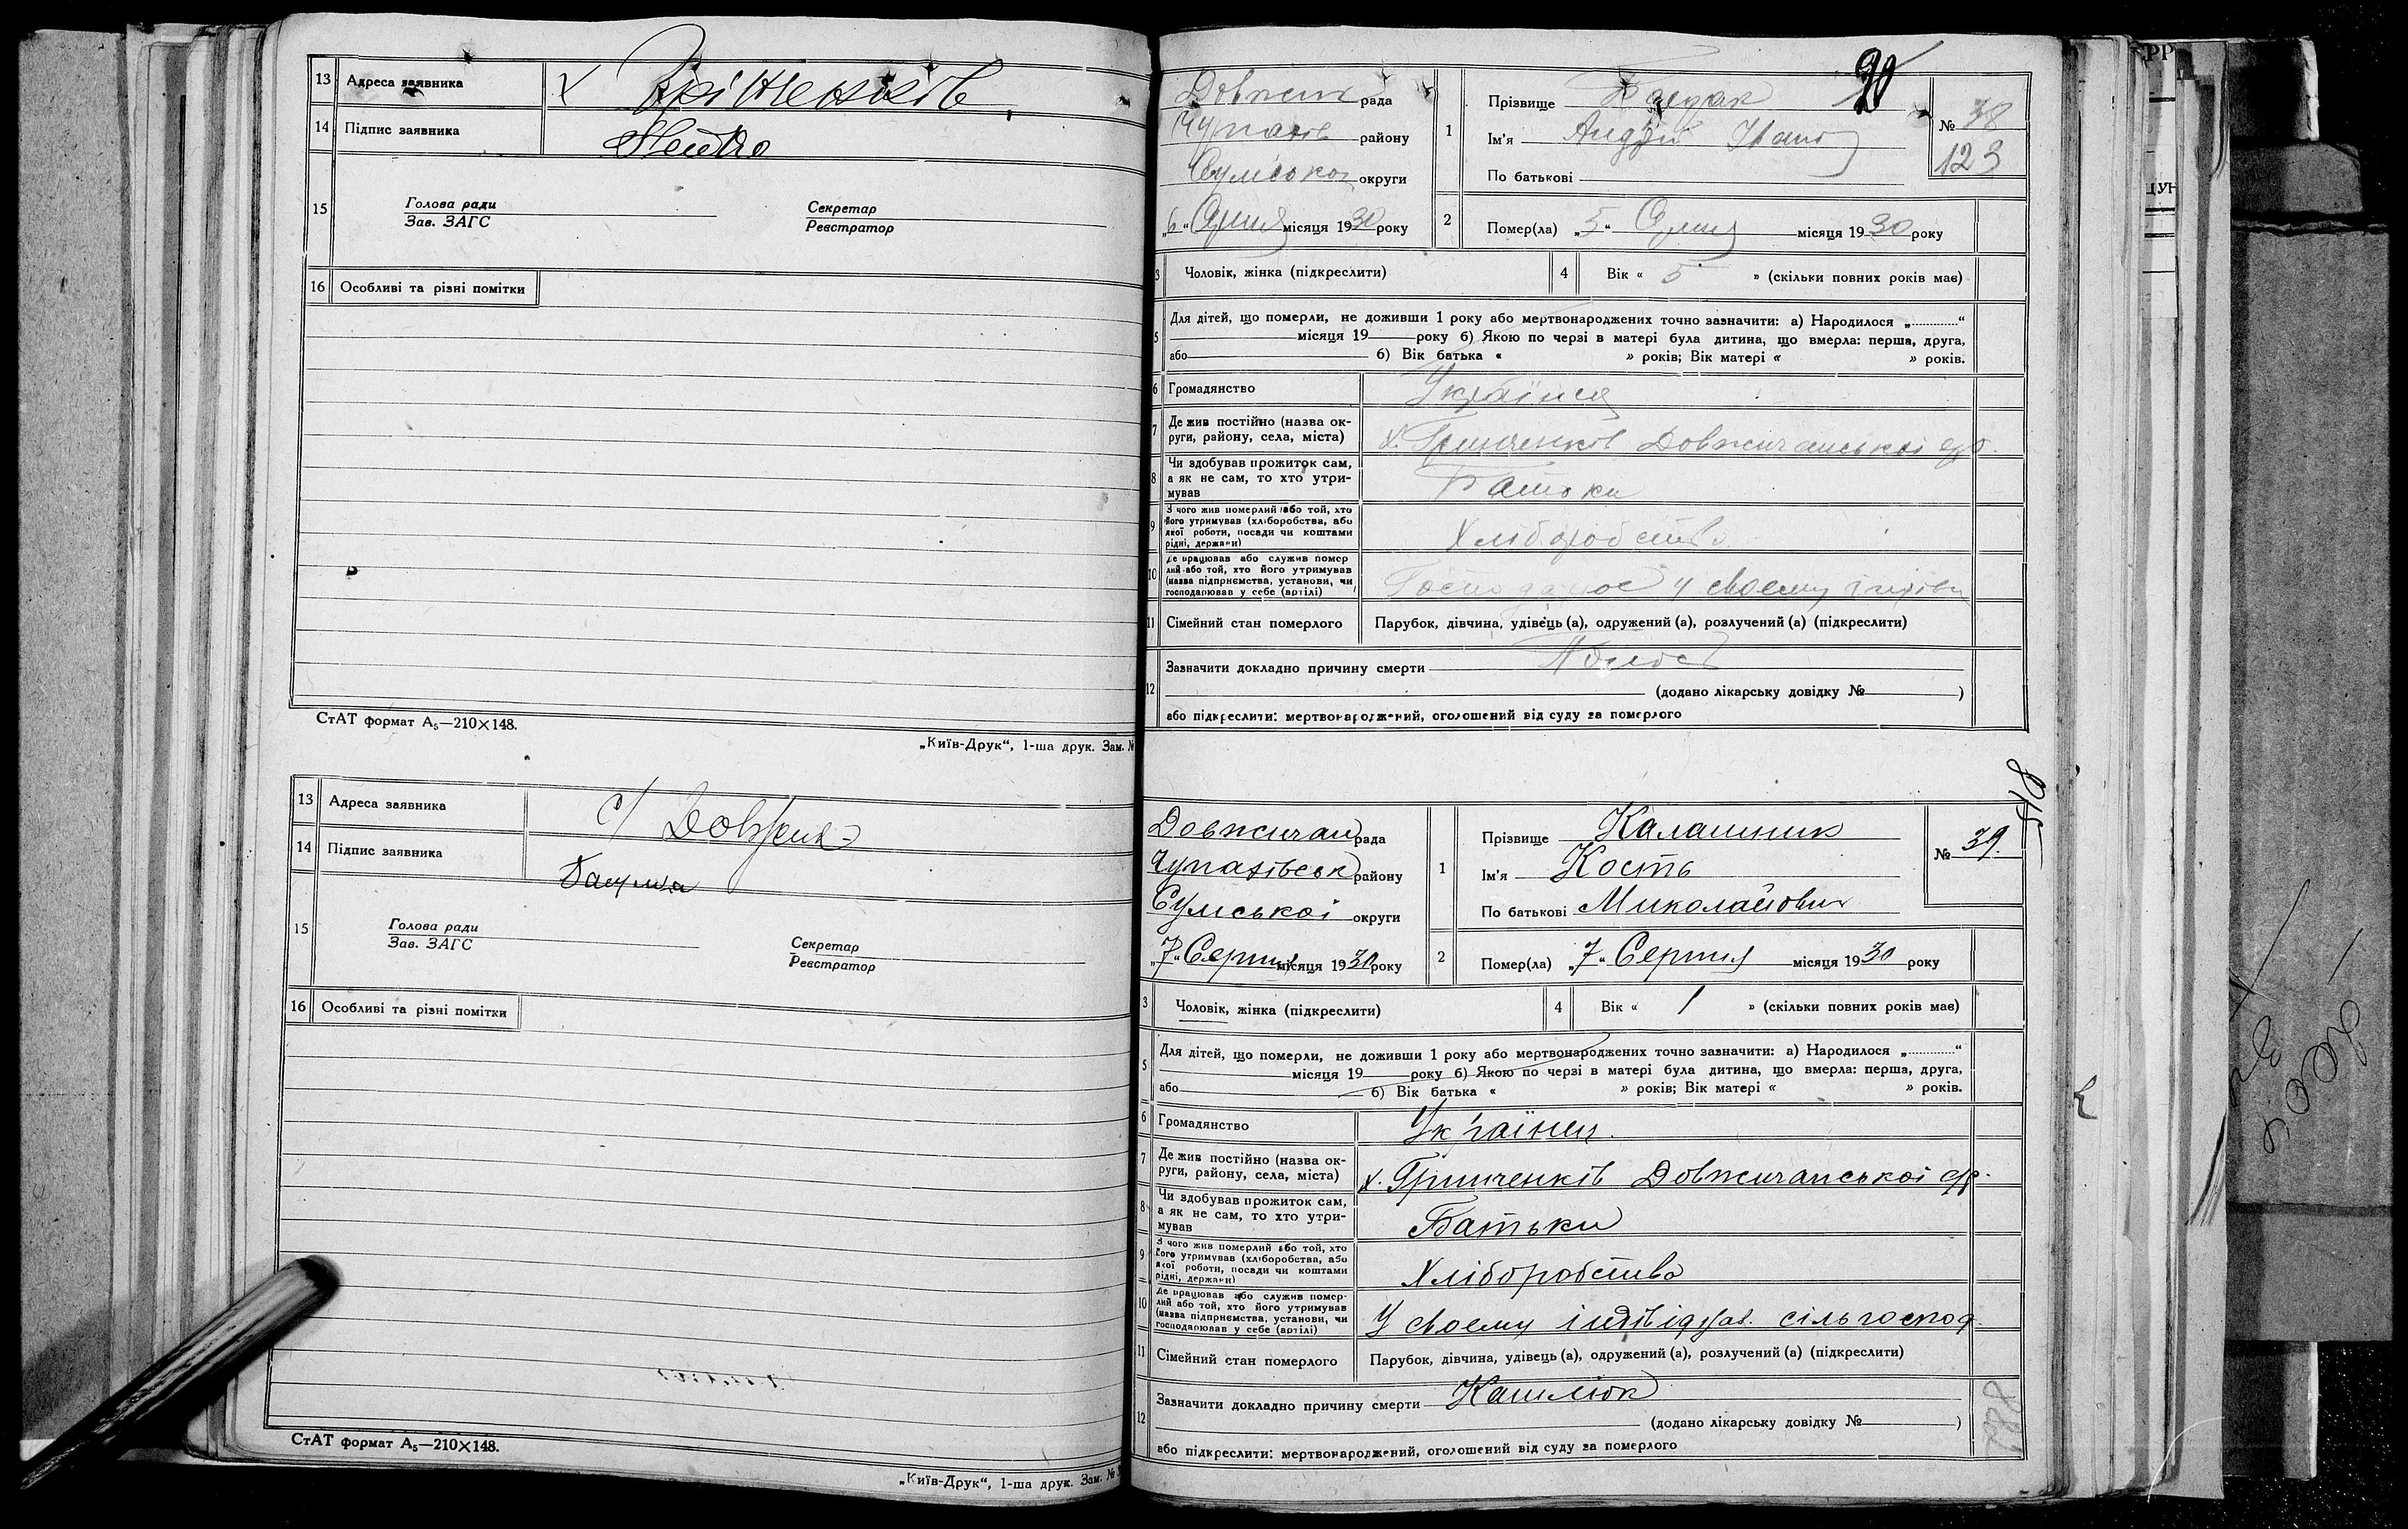 13 Адреса заявника х
14 Підпис заявника
15 Голова ради Секретар
Зав. ЗАГС Реєстратор
16 Особливі та різні помітки
СтАТ формат А₅—210×148.
„Київ-Друк“, 1-ша друк. Зам. №
13 Адреса заявника с/
14 Підпис заявника
15 Голова ради Секретар
Зав. ЗАГС Реєстратор
16 Особливі та різні помітки
СтАТ формат А₅—210×148.
„Київ-Друк“, 1-ша друк. Зам. №
90
рада
району
Сумської округи
„6“ Серпня місяця 1930 року
1 Прізвище
Ім'я Андрій Іван
По батькові
№ 38
123
2 Помер(ла) „5“ Серпня місяця 1930 року
3 Чоловік, жінка (підкреслити) 4 Вік « 5 » (скільки повних років має)
5 Для дітей, що померли, не доживши 1 року або мертвонароджених точно зазначити: а) Народилося „............“
місяця 19 року б) Якою по черзі в матері була дитина, що вмерла: перша, друга,
або б) Вік батька « » років; Вік матері « » років.
6 Громадянство Українец
7 Де жив постійно (назва округи, району, села, міста) х. Гринченків Довжичанської с/р.
8 Чи здобував прожиток сам, а як не сам, то хто утримував Батьки
9 З чого жив померлий або той, хто його утримував (хліборобства, або якої роботи, посади чи коштами рідні, держави) Хліборобство
10 Де працював або служив померлий або той, хто його утримував (назва підприємства, установи, чи господарював у себе (артілі) у своему
11 Сімейний стан померлого Парубок, дівчина, удівець (а), одружений (а), розлучений (а) (підкреслити)
12 Зазначити докладно причину смерти
(додано лікарську довідку № )
або підкреслити: мертвонароджений, оголошений від суду за померлого
Довжичан рада
Чупахівськ району
Сумської округи
„7“ Серпня місяця 1930 року
1 Прізвище Калашник
Ім'я Кость
По батькові Миколайович
№ 39.
2 Помер(ла) „7“ Серпня місяця 1930 року
3 Чоловік, жінка (підкреслити) 4 Вік « 1 » (скільки повних років має)
5 Для дітей, що померли, не доживши 1 року або мертвонароджених точно зазначити: а) Народилося „............“
місяця 19 року б) Якою по черзі в матері була дитина, що вмерла: перша, друга,
або б) Вік батька « » років; Вік матері « » років.
6 Громадянство Українец.
7 Де жив постійно (назва округи, району, села, міста) х. Гринченків Довжичанської с/р.
8 Чи здобував прожиток сам, а як не сам, то хто утримував Батьки
9 З чого жив померлий або той, хто його утримував (хліборобства, або якої роботи, посади чи коштами рідні, держави) Хліборобство
10 Де працював або служив померлий або той, хто його утримував (назва підприємства, установи, чи господарював у себе (артілі) У своему індівідуал. сільгоспод
11 Сімейний стан померлого Парубок, дівчина, удівець (а), одружений (а), розлучений (а) (підкреслити)
12 Зазначити докладно причину смерти Кашлюк
(додано лікарську довідку № )
або підкреслити: мертвонароджений, оголошений від суду за померлого